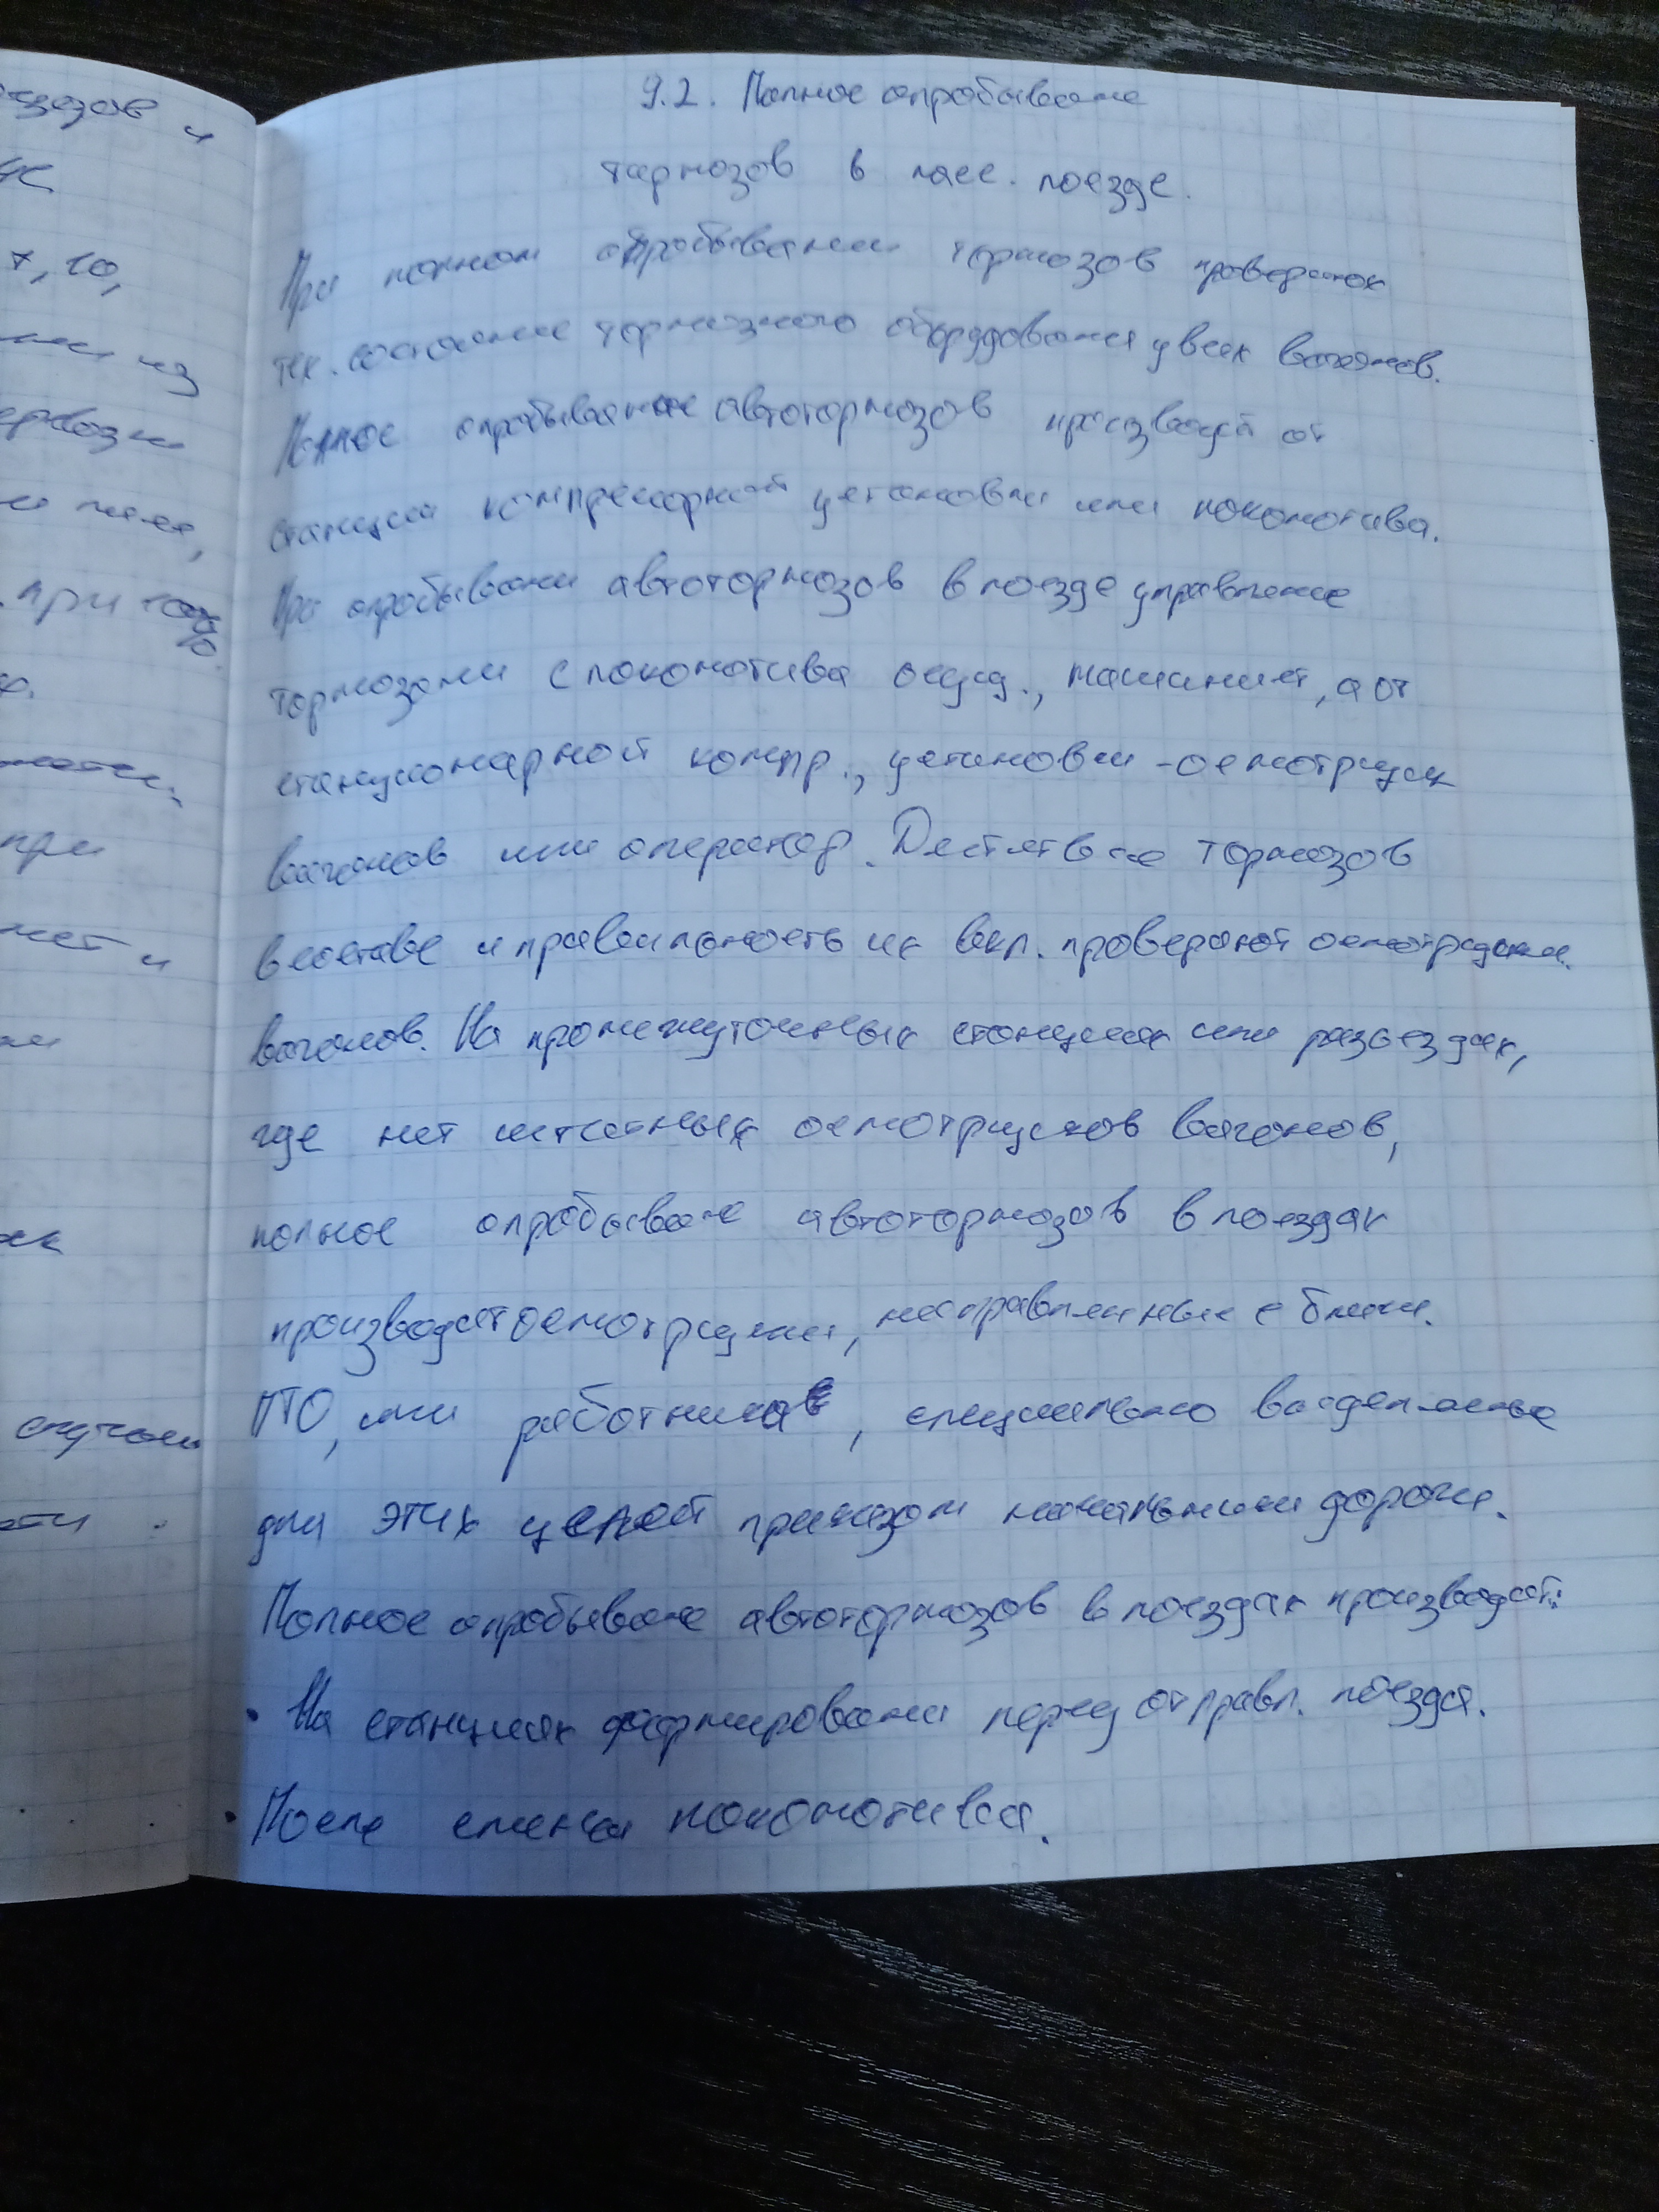 9.2. Полное опробывание
тормозов в пасс. поезде.
При полном опробывании тормозов проверяют
тех. состояние тормозного оборудования у всех вагонов.
Полное опробывание автотормозов производят от
станции компрессорной установки или локомотива.
При опробывании автотормозов в поезде управление
тормозами с локомотива осущ., машинист, а от
станционарной компр., установки - осмотрщик
вагонов или оператор. Действие тормозов
в составе и правильность их вкл. проверяют осмотрщики
вагонов. На промежуточных станциях или разъездах,
где нет штатных осмотрщиков вагонов,
полное опробывание автотормозов в поездах
производят осмотрщики, направленные с ближ.
ПТО, или работников, специально выделенные
для этих целей приказом начальника дороги.
Полное опробывание автотормозов в поездах производят:
• На станциях формирования перед отправл. поезда.
• После смены локомотива.
тормозов и
7, 10,
или из
при
при
нет и
случаи